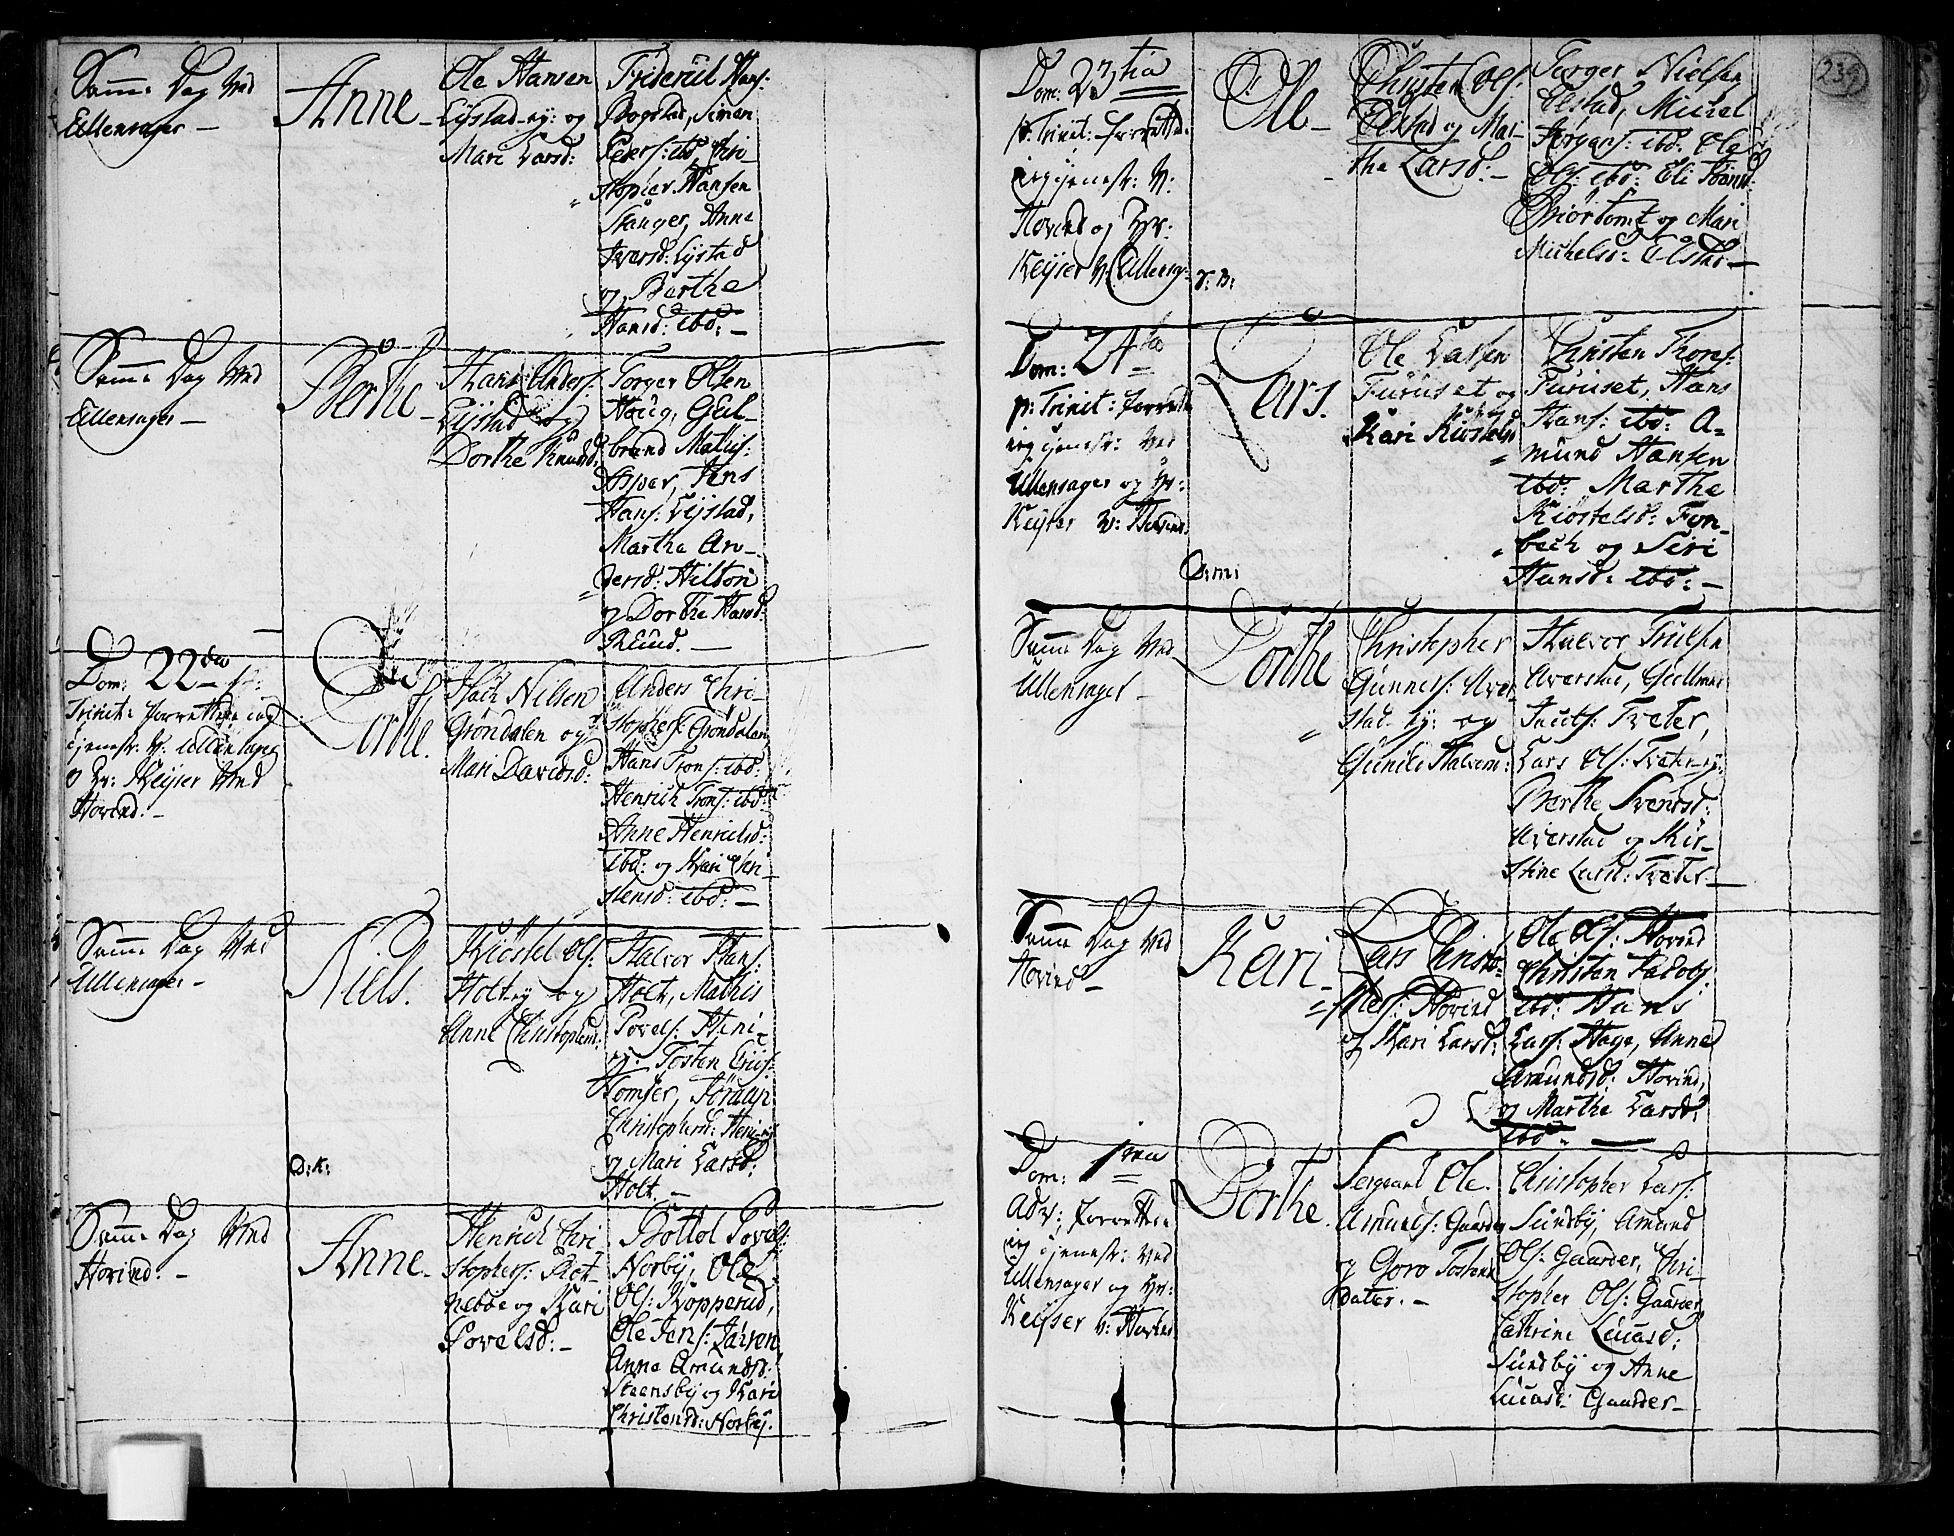 Samme Dag ved
Ullensager —
Anne
Ole Hansen
Lystad-ey: og
Mari Larsd:
Friderich Hans:
Bogstad, Simen
Peders: ibd, Chri-
stopher Hansen
Stanger, Anne
Iversd: Lystad
og Berthe
Hansd: ibd: —
Samme Dag ved
Ullensager —
Berthe
Hans Anders:
Lystad og
Dorthe Knudsd.
Torger Olsen
Houg, Gul-
brand Mathis:
Asper, Jens
Hans: Lystad,
Martha An-
dersd: Hilton
og Dorthe Hansd:
Risund. —
Dom: 22da p:
Trinit: forrettede ieg
tjenest: v: Ullensager
og Hr: Keyser ved
Hovind. —
Dorthe.
Isach Nilsen
Grøndalen og
Mari Davidsd:
Anders Chri-
stophers: Grøndalen
Hans Trons: ibd:
Henrich Trons: ibd:
Anne Henrichsd:
ibd: og Kari Chri-
stensd: ibd: —
Samme Dag ved
Ullensager —
Niels.
Kiøstel Ols:
Holt-ey og
Anne Christophersd:
Halvor Hans:
Holt, Mathis
Povels: Heni-
ey: Tosten Erichs:
Homser, Jøraan
Christophersd: Heni-ey
og Mari Larsd:
Holt. —
D: K:
Samme Dag ved
Hovind: —
Anne
Henrich Chri
stophers: Rot-
nebbe og Kari
Povelsd: —
Bottol Povels:
Norby, Ole
Ols: Kopperud,
Ole Jens: Jahren
Anne Amundsd:
Steensby og Kari
Christensd: Norby.
239
Dom: 23tia
p: Trinit: forrettede
ieg tjenest: v:
Hovind og Hr:
Keyser v: Ullensag:
Ole
Christen Ols:
Elstad og Mar-
tha Larsd: —
Torger Nielsen
Elstad, Michel
Jørgens: ibd: Ole
Ols: ibd: Eli
Biørtomt og Mari
Michelsd: Elstad —
T: B:
Dom: 24ta
p: Trinit: forrettede
ieg tjenest: ved
Ullensager og Hr:
Keyser v: Hovind
Lars.
Ole Larsen
Furuset og
Kari Kiøstelsd
Christen Thores:
Furuset, Hans
Hans: ibd: A-
mund Hansen
ibd: Marthe
Kiøstelsd: Fon-
bech og Siri
Hansd: ibd: —
D: m:
Samme Dag ved
Ullensager —
Dorthe
Christopher
Gunners: Aver
stad-ey: og
Gunild Halvorsd:
Halvor Trulsen
Averstad, Guldmar
Tveter,
Lars Ols: Tveter-ey:
Berthe Svendsd:
Averstad og Kir-
stine Larsd: Tveter. —
Samme Dag ved
Hovind —
Kari
Lars Christo-
phers: Hovind
og Kari Larsd:
Ole Ols: Hovind
Christen Jadobs:
ibd: Hans
Lars: Hage, Anne
Amundsd: Hovind,
og Marthe Larsd:
ibd: —
Dom: 1ma
Adv: forrettede
ieg tjenest: ved
Ullensager og Hr:
Keyser v: Hovind
Berthe.
Sergeant Ole
Amunds: Gaarder
og Goro Tostens
Datter. —
Christopher Lars:
Sundby, Amund
Ols: Gaarder, Chri-
stopher Ols: Gaarder
Cathrine Lucasd:
Sundby og Anne
Lucasd: Gaarder —